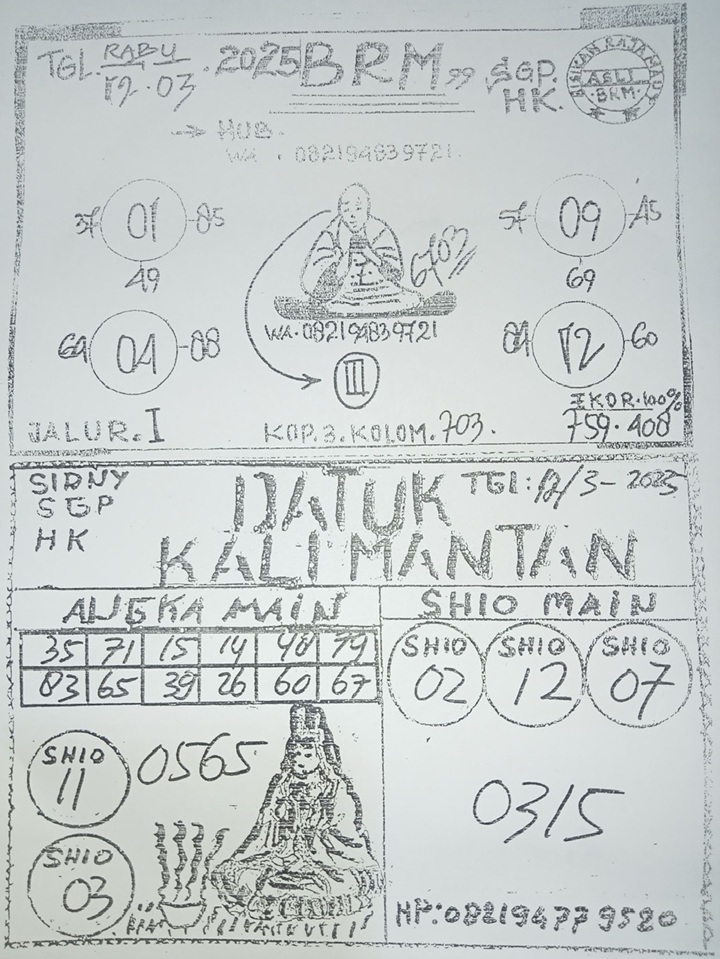 TGL. RABU 12.03 . 2025 BRM 99 SGP. HK.
BISIKAN RAJA MAUT
ASLI
BRM.
→ HUB.
WA . 082194839721.
37 01 85
49
57 09 45
69
6703
WA. 082194839721
04 88
12 60
III
IKOR. 100%
759.408
JALUR. I
KOP. 3. KOLOM. 703.
SIDNY
SGP
HK
DATUK
KALIMANTAN
TGl: 12/3 - 2025
ANGKA MAIN
SHIO MAIN
35 71 15 14 48 79
83 65 39 26 60 67
SHIO 02
SHIO 12
SHIO 07
SHIO 11
0565
SHIO 03
0315
HP: 082194779520